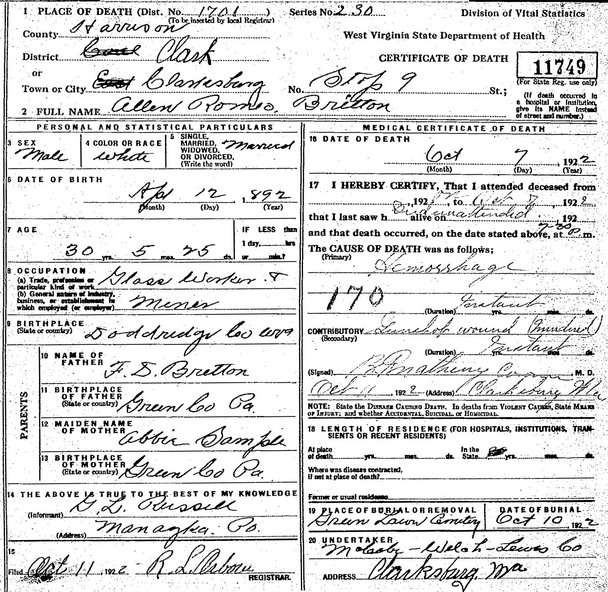 1 PLACE OF DEATH (Dist. No. 1701 ) Series No. 230 Division of Vital Statistics
(To be inserted by local Registrar)
County Harrison West Virginia State Department of Health
District Clark CERTIFICATE OF DEATH 11749
or (For State Reg. use only)
Town or City Clarksburg No. Stop 9 St.;
(If death occurred in a hospital or institution, give its NAME instead of street and number.)
2 FULL NAME Allen Romeo Britton
PERSONAL AND STATISTICAL PARTICULARS
3 SEX Male
4 COLOR OR RACE White
5 SINGLE, MARRIED, WIDOWED, OR DIVORCED, (Write the word) Married
6 DATE OF BIRTH
Apr 12 , 1892
(Month) (Day) (Year)
7 AGE IF LESS than
30 yrs. 5 mos. 25 ds. 1 day, hrs. or min.?
8 OCCUPATION
(a) Trade, profession or particular kind of work Glass Worker &
(b) General nature of industry, business, or establishment in which employed (or employer) Miner
9 BIRTHPLACE
(State or country) Doddridge Co WVa
PARENTS
10 NAME OF FATHER F. D. Britton
11 BIRTHPLACE OF FATHER
(State or country) Green Co Pa.
12 MAIDEN NAME OF MOTHER Abbie Sample
13 BIRTHPLACE OF MOTHER
(State or country) Green Co Pa.
14 THE ABOVE IS TRUE TO THE BEST OF MY KNOWLEDGE
(Informant) G. L. Russell
(Address) Pa.
15
Filed Oct 11 , 1922 R. L. Osborn
REGISTRAR.
MEDICAL CERTIFICATE OF DEATH
16 DATE OF DEATH
Oct 7 , 1922
(Month) (Day) (Year)
17 I HEREBY CERTIFY, That I attended deceased from
, 192 , to Oct 7 , 1922
that I last saw h alive on unattended , 192
and that death occurred, on the date stated above, at m.
The CAUSE OF DEATH was as follows:
(Primary) Hemorrhage
170
(Duration) Instant
CONTRIBUTORY Gunshot wound (Murdered)
(Secondary)
(Duration) Instant
(Signed) Matheny M. D.
Oct 11 1922 (Address) Clarksburg W Va
NOTE: State the DISEASE CAUSING DEATH. In deaths from VIOLENT CAUSES, State MEANS OF INJURY; and whether ACCIDENTAL, SUICIDAL, or HOMICIDAL.
18 LENGTH OF RESIDENCE (FOR HOSPITALS, INSTITUTIONS, TRANSIENTS OR RECENT RESIDENTS)
At place of death yrs. mos. ds. In the State yrs. mos. ds.
Where was disease contracted, if not at place of death?
Former or usual residence
19 PLACE OF BURIAL OR REMOVAL DATE OF BURIAL
Green Lawn Cemetery Oct 10, 1922
20 UNDERTAKER
-Welch-Lewis Co
ADDRESS Clarksburg, Wva